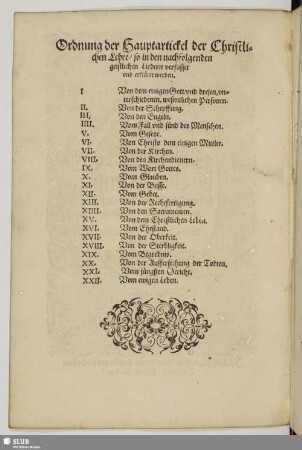 Ordnung der Hauptartickel der Christli-
chen Lehre / so in den nachfolgenden
geistlichen Liedern verfasset
vnd erkleret werden.
I Von dem einigen Gott / vnd dreien vn-
terschiedenen, wesentlichen Personen.
II. Von der Schepffung.
III. Von den Engeln.
IIII. Vom Fall vnd sünd des Menschen.
V. Vom Gesetze.
VI. Von Christo dem einigen Mitler.
VII. Von der Kirchen.
VIII. Von den Kirchendienern.
IX. Vom Wort Gottes.
X. Vom Glauben.
XI. Von der Busse.
XII. Vom Gebet.
XIII. Von der Rechtfertigung.
XIIII. Von den Sacramenten.
XV. Von dem Christlichen Leben.
XVI. Vom Ehestand.
XVII. Von der Oberkeit.
XVIII. Von der Sterbligkeit.
XIX. Vom Begrebnis.
XX. Von der Aufferstehung der Todten.
XXI. Vom jüngsten Gericht.
XXII. Vom ewigen Leben.
SLUB